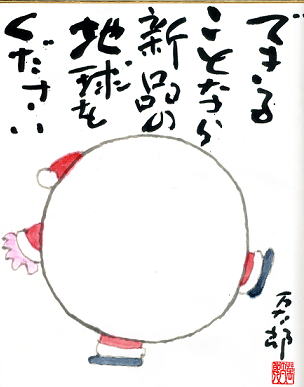 できる
ことなら
新品の
地球を
ください
万太郎